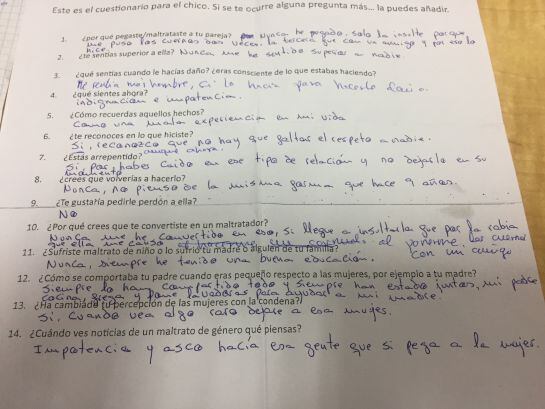 Este es el cuestionario para el chico. Si se te ocurre alguna pregunta más... la puedes añadir.
1. ¿por qué pegaste/maltrataste a tu pareja? Nunca he pegado, solo la insulte porque,
me puso los cuernos dos veces, la tercera fue con un amigo y por eso lo
hice.
2. ¿te sentías superior a ella? Nunca me he sentido superior a nadie.
3. ¿qué sentías cuando le hacías daño? ¿eras consciente de lo que estabas haciendo?
Me sentia mas hombre, si lo hacia para hacerle daño.
4. ¿qué sientes ahora?
indignación e impotencia.
5. ¿Cómo recuerdas aquellos hechos?
Como una mala experiencia en mi vida
6. ¿te reconoces en lo que hiciste?
Si, reconozco que no hay que faltar el respeto a nadie.
7. ¿Estás arrepentido? aunque ahora.
Si, por haber caido en ese tipo de relación y no dejarlo en su
momento
8. ¿crees que volverías a hacerlo?
Nunca, no pienso de la misma forma que hace 9 años.
9. ¿Te gustaría pedirle perdón a ella?
NO
10. ¿Por qué crees que te convertiste en un maltratador?
Nunca me he convertido en eso, si llegue a insultarla fue por la rabia
que ella me causo al ponerme los cuernos
con un amigo
11. ¿Sufriste maltrato de niño o lo sufrió tu madre o alguien de tu familia?
Nunca, siempre he tenido una buena educación.
12. ¿Cómo se comportaba tu padre cuando eras pequeño respecto a las mujeres, por ejemplo a tu madre?
Siempre lo han compartido todo y siempre han estado juntos, mi padre
cocina, friega y pone lavadoras para ayudar a mi madre.
13. ¿Ha cambiado tu percepción de las mujeres con la condena?
Si, cuando vea algo raro dejare a esa mujer.
14. ¿Cuándo ves noticias de un maltrato de género qué piensas?
Impotencia y asco hacía esa gente que si pega a la mujer.